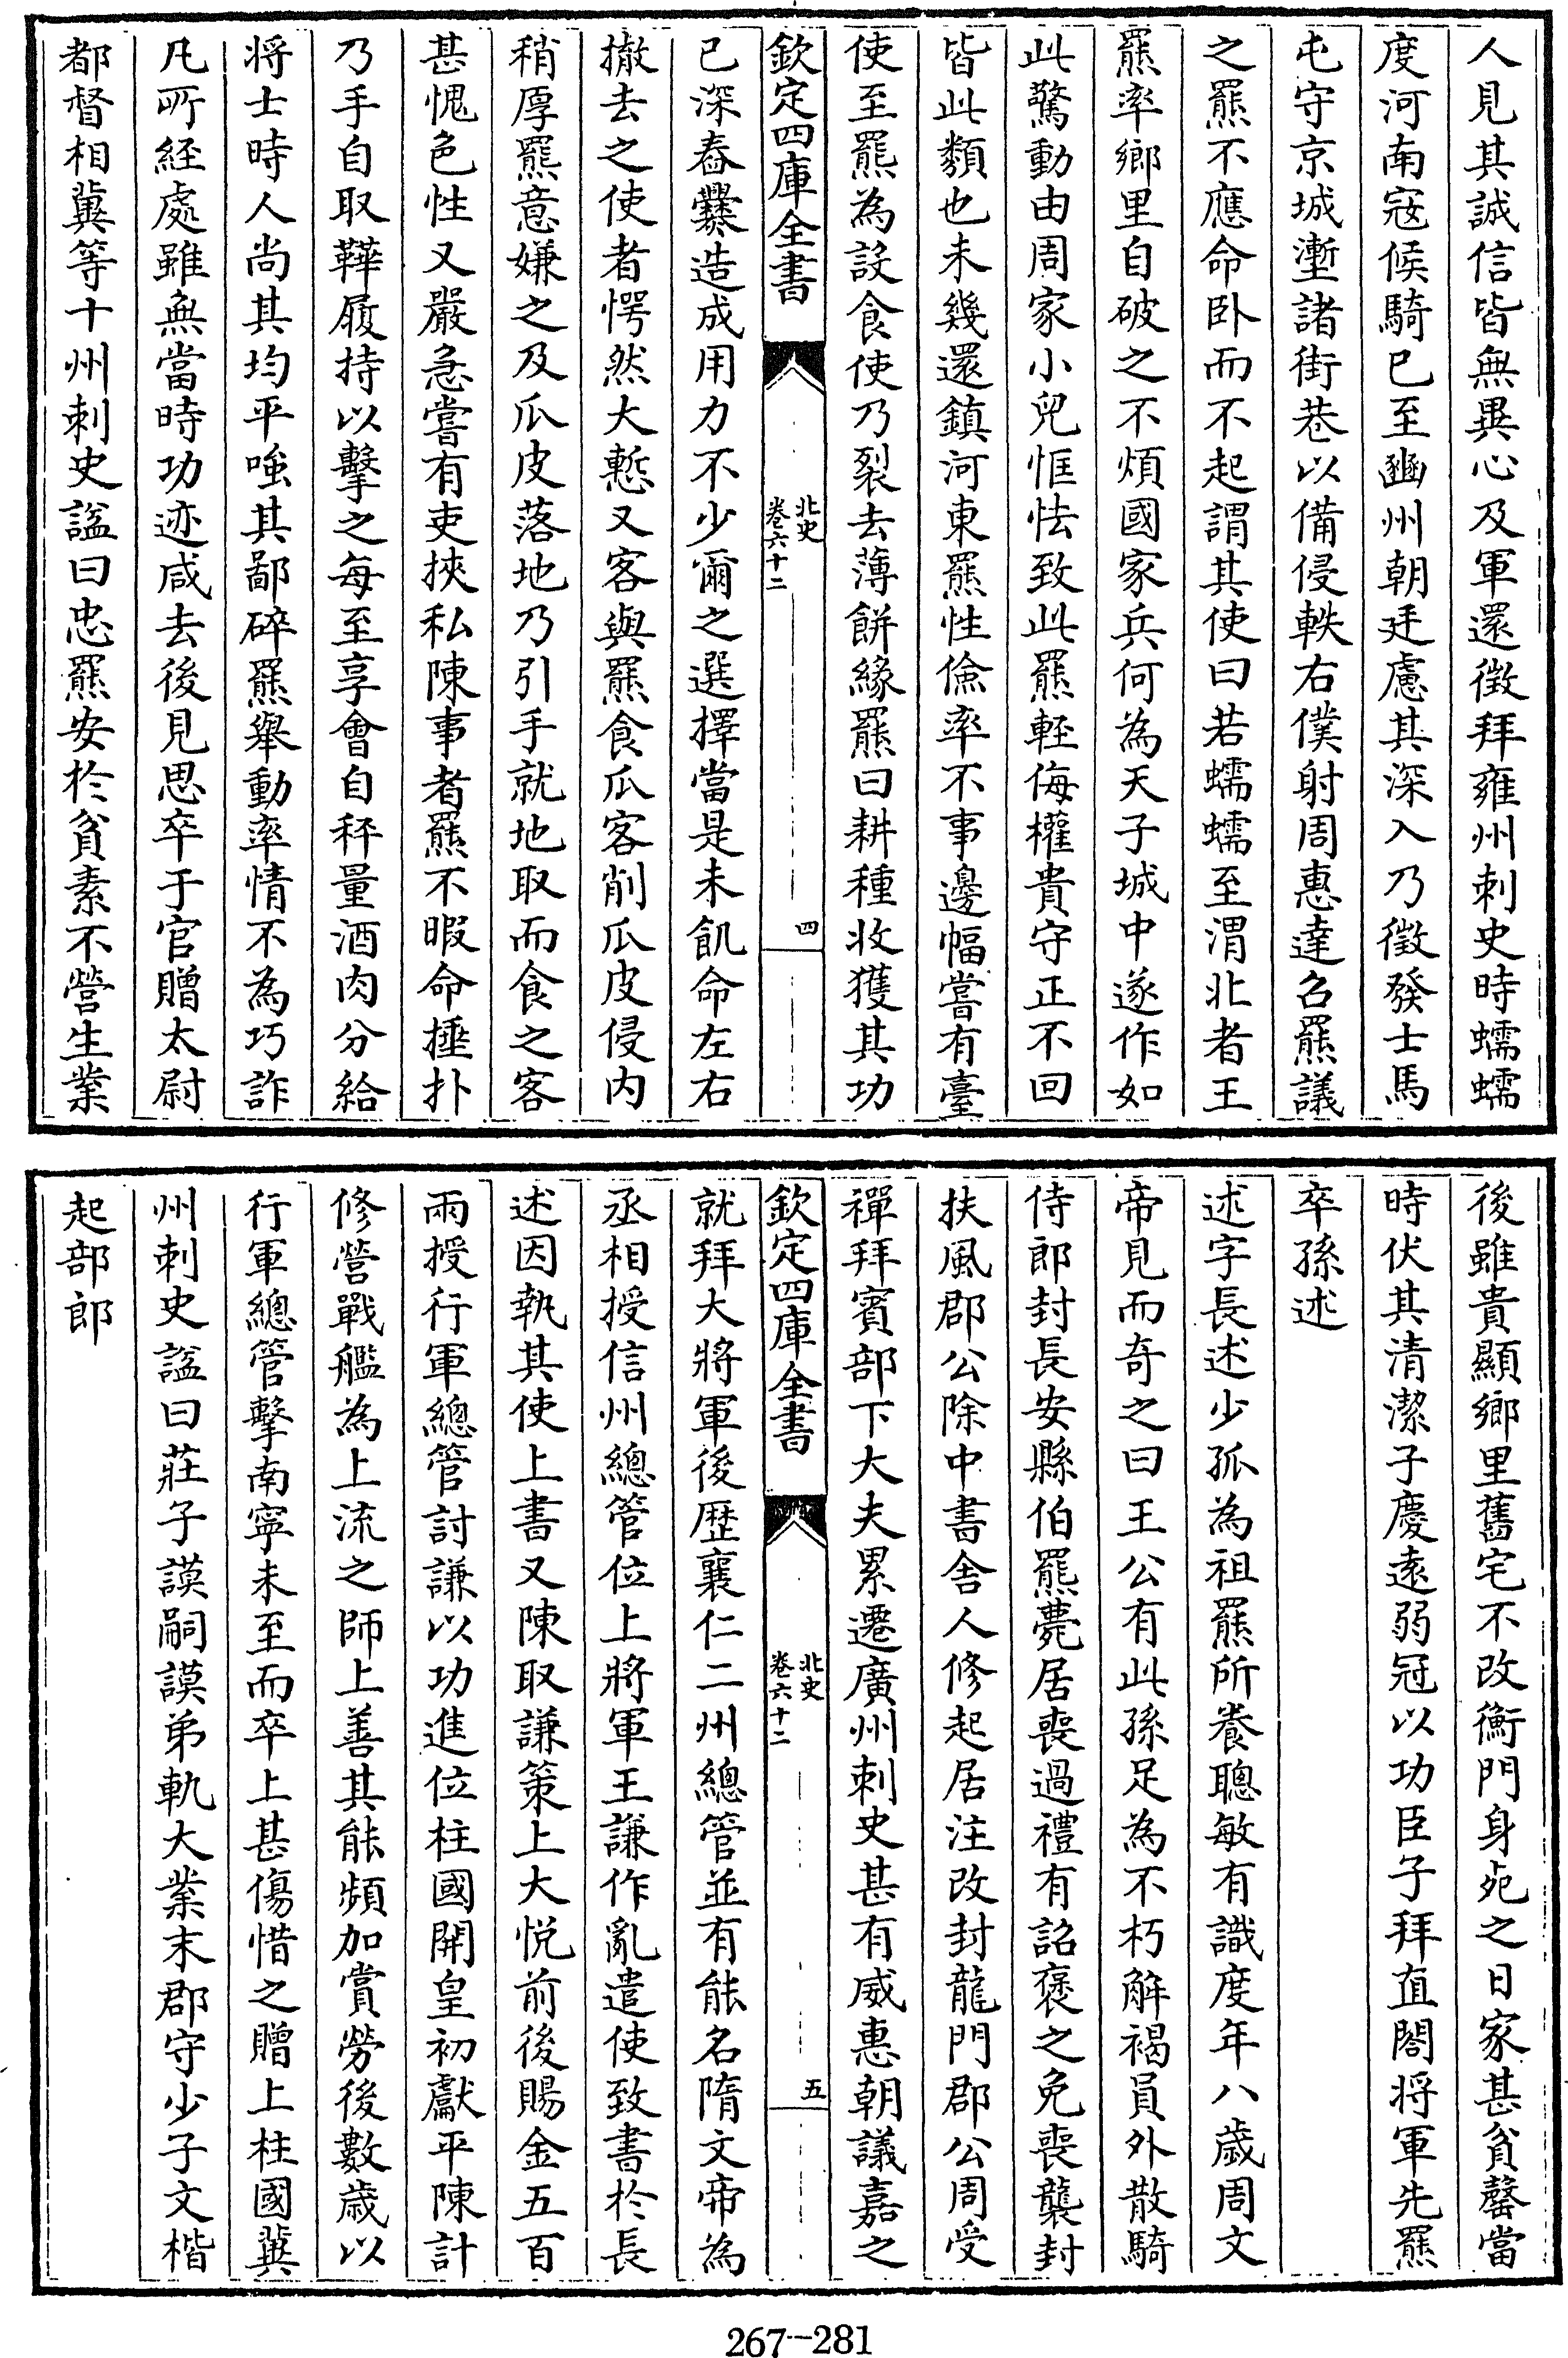 人見其誠信皆無異心及軍還徴拜雍州刺史時蠕蠕
度河南寇候騎已至豳州朝廷慮其深入乃徵發士馬
屯守京城塹諸街巷以備侵軼右僕射周惠達召羆議
之羆不應命卧而不起謂其使曰若蠕蠕至渭北者王
羆率鄉里自破之不煩國家兵何為天子城中遂作如
此驚動由周家小兒恇怯致此羆輕侮權貴守正不回
皆此類也未幾還鎮河東羆性儉率不事邊幅嘗有臺
使至羆為設食使乃裂去薄餅緣羆曰耕種收獲其功
欽定四庫全書
北史
卷六十二
四
已深舂爨造成用力不少爾之選擇當是未飢命左右
撤去之使者愕然大慙又客與羆食瓜客削瓜皮侵内
稍厚羆意嫌之及瓜皮落地乃引手就地取而食之客
甚愧色性又嚴急嘗有吏挾私陳事者羆不暇命捶扑
乃手自取鞾履持以擊之每至享會自秤量酒肉分給
将士時人尚其均平嗤其鄙碎羆舉動率情不為巧詐
凡所經處雖無當時功迹咸去後見思卒于官贈太尉
都督相冀等十州刺史諡曰忠羆安於貧素不營生業
後雖貴顯鄉里舊宅不改衡門身死之日家甚貧罄當
時伏其清潔子慶逺弱冠以功臣子拜直閤将軍先羆
卒孫述
述字長述少孤為祖羆所養聰敏有識度年八歳周文
帝見而奇之曰王公有此孫足為不朽解褐員外散騎
侍郎封長安縣伯羆薨居喪過禮有詔褒之免喪襲封
扶風郡公除中書舍人修起居注改封龍門郡公周受
禪拜賓部下大夫累遷廣州刺史甚有威惠朝議嘉之
欽定四庫全書
北史
卷六十二
五
就拜大將軍後歴襄仁二州總管並有能名隋文帝為
丞相授信州總管位上將軍王謙作亂遣使致書於長
述因執其使上書又陳取謙策上大悦前後賜金五百
兩授行軍總管討謙以功進位柱國開皇初獻平陳計
修營戰艦為上流之師上善其能頻加賞勞後數歳以
行軍總管擊南寧未至而卒上甚傷惜之贈上柱國冀
州刺史諡曰莊子謨嗣謨弟軌大業末郡守少子文楷
起部郎
267—281